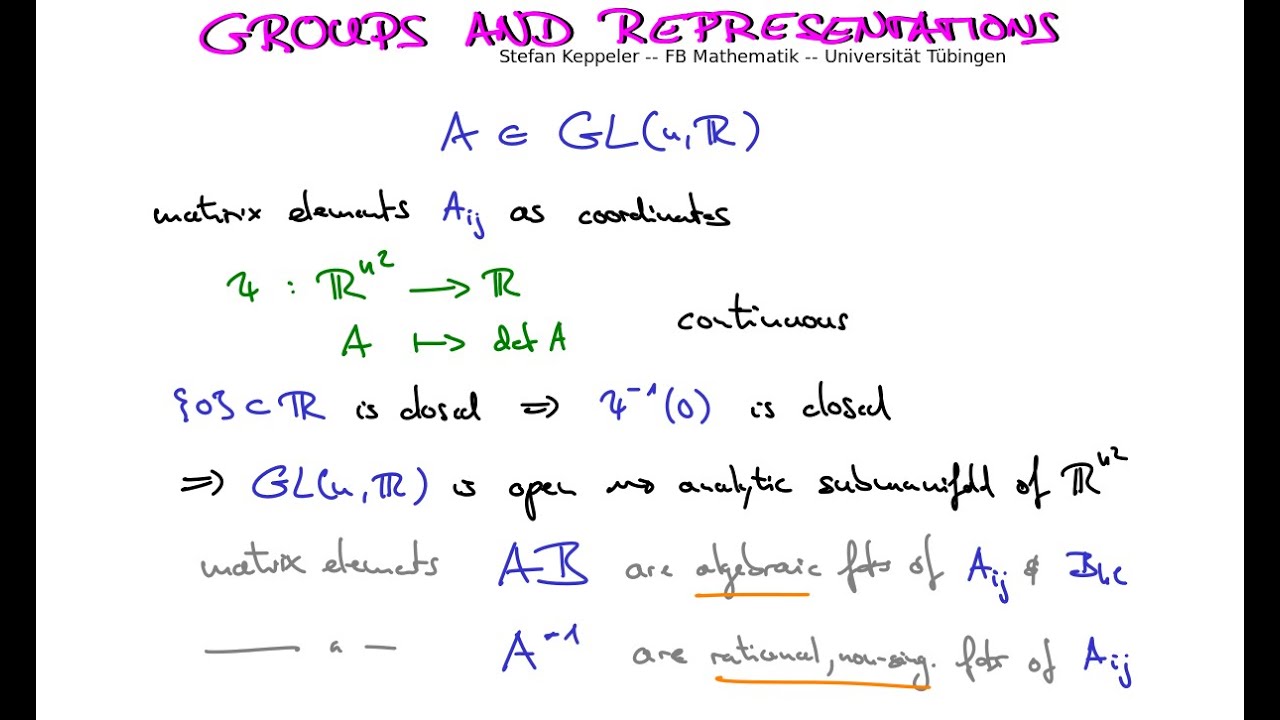 GROUPS AND REPRESENTATIONS
Stefan Keppeler -- FB Mathematik -- Universität Tübingen
A ∈ GL(n, ℝ)
matrix elements Aᵢⱼ as coordinates
ψ : ℝⁿ² → ℝ
A ↦ det A
continuous
{0} ⊂ ℝ is closed ⇒ ψ⁻¹(0) is closed
⇒ GL(n, ℝ) is open ⇝ analytic submanifold of ℝⁿ²
matrix elements AB are algebraic fcts of Aᵢⱼ & Bₖₗ
—— " — A⁻¹ are rational, non-sing. fcts of Aᵢⱼ